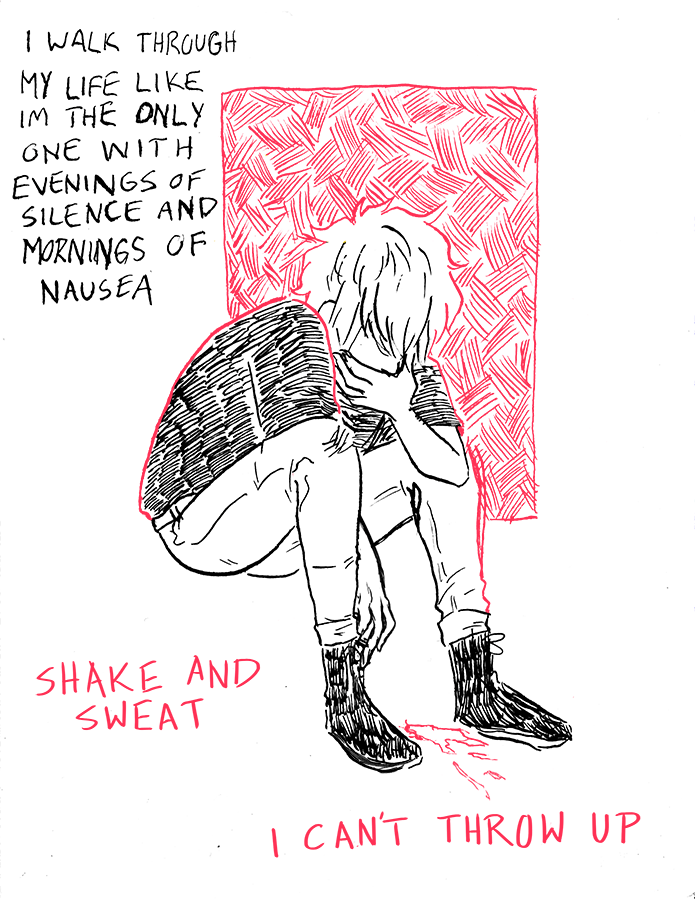 I WALK THROUGH
MY LIFE LIKE
IM THE ONLY
ONE WITH
EVENINGS OF
SILENCE AND
MORNINGS OF
NAUSEA
SHAKE AND
SWEAT
I CAN'T THROW UP